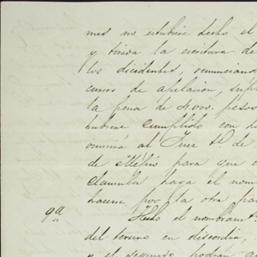 mes no estubiere hecho el
y tirada la escritura de
los disidentes, renunciand
curso de apelacion, sufr
la pena de 4,000. pesos
hubiere cumplido con
ominá al Juez 1º de
de Mejico para que
haga el nom
hacerse por la otra par
9ª Hecho el nombram
del tercero en discordia,
y el segundo podran